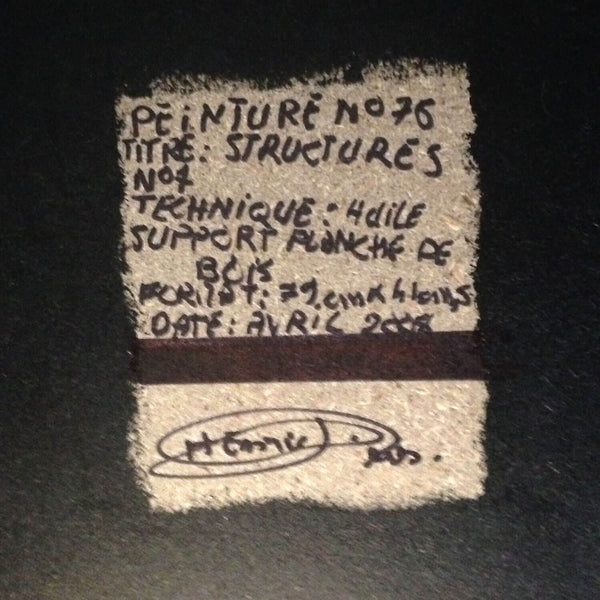 PEINTURE No 76
TITRE: STRUCTURES
No1
TECHNIQUE: HUILE
SUPPORT PLANCHE DE
BOIS
FORMAT: 79,cm X 41cm,5
DATE: AVRIL 2008